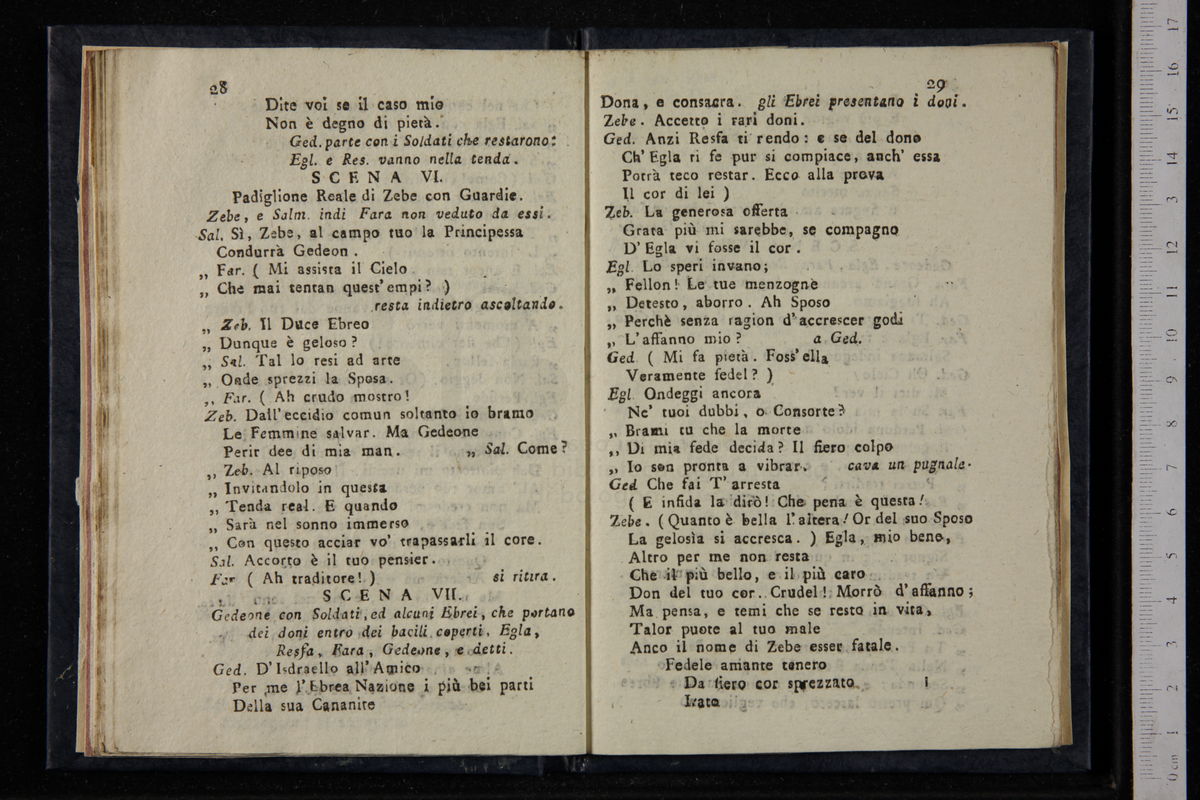 28
Dite voi se il caso mio
Non è degno di pietà.
Ged. parte con i Soldati che restarono:
Egl. e Res. vanno nella tenda.
SCENA VI.
Padiglione Reale di Zebe con Guardie.
Zebe, e Salm. indi Fara non veduto da essi.
Sal. Sì, Zebe, al campo tuo la Principessa
Condurrà Gedeon.
„ Far. ( Mi assista il Cielo
„ Che mai tentan quest' empi? )
resta indietro ascoltando.
„ Zeb. Il Duce Ebreo
„ Dunque è geloso?
„ Sal. Tal lo resi ad arte
„ Onde sprezzi la Sposa.
„ Far. ( Ah crudo mostro!
Zeb. Dall' eccidio comun soltanto io bramo
Le Femmine salvar. Ma Gedeone
Perir dee di mia man. „ Sal. Come?
„ Zeb. Al riposo
„ Invitandolo in questa
„ Tenda real. E quando
„ Sarà nel sonno immerso
„ Con questo acciar vo' trapassarli il core.
Sal. Accorto è il tuo pensier.
Far ( Ah traditore! ) si ritira.
SCENA VII.
Gedeone con Soldati, ed alcuni Ebrei, che portano
dei doni entro dei bacili coperti, Egla,
Resfa, Fara, Gedeone, e detti.
Ged. D' Isdraello all' Amico
Per me l' Ebrea Nazione i più bei parti
Della sua Cananite
29
Dona, e consacra. gli Ebrei presentano i doni.
Zebe. Accetto i rari doni.
Ged. Anzi Resfa ti rendo: e se del dono
Ch' Egla ti fe pur si compiace, anch' essa
Potrà teco restar. Ecco alla prova
Il cor di lei )
Zeb. La generosa offerta
Grata più mi sarebbe, se compagno
D' Egla vi fosse il cor.
Egl. Lo speri invano;
„ Fellon! Le tue menzogne
„ Detesto, aborro. Ah Sposo
„ Perchè senza ragion d' accrescer godi
„ L' affanno mio? a Ged.
Ged. ( Mi fa pietà. Foss' ella
Veramente fedel? )
Egl. Ondeggi ancora
Ne' tuoi dubbi, o Consorte?
„ Brami tu che la morte
„ Di mia fede decida? Il fiero colpo
„ Io son pronta a vibrar. cava un pugnale.
Ged Che fai T' arresta
( E infida la dirò! Che pena è questa!
Zebe. ( Quanto è bella l' altera! Or del suo Sposo
La gelosìa si accresca. ) Egla, mio bene,
Altro per me non resta
Che il più bello, e il più caro
Don del tuo cor. Crudel! Morrò d' affanno;
Ma pensa, e temi che se resto in vita,
Talor puote al tuo male
Anco il nome di Zebe esser fatale.
Fedele amante tenero
Da fiero cor sprezzato
Irato
0 cm 1 2 3 4 5 6 7 8 9 10 11 12 13 14 15 16 17